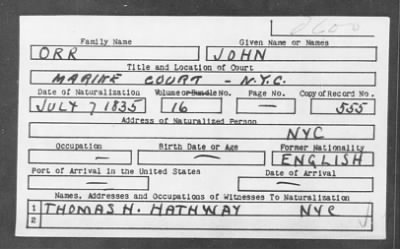 Family Name Given Name or Names
ORR JOHN
Title and Location of Court
MARINE COURT - N.Y.C.
Date of Naturalization Volume or Bundle No. Page No. Copy of Record No.
JULY 7 1835 16 — 555
Address of Naturalized Person
NYC
Occupation Birth Date or Age Former Nationality
— — ENGLISH
Port of Arrival in the United States Date of Arrival
— —
Names, Addresses and Occupations of Witnesses To Naturalization
1 THOMAS H. HATHWAY NYC
2